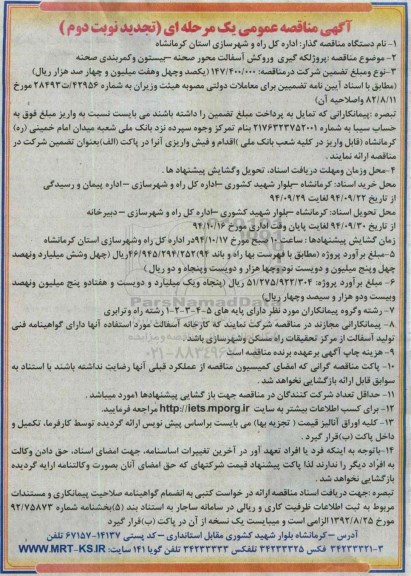 آگهی مناقصه عمومی یک مرحله ای (تجدید نوبت دوم)
۱- نام دستگاه مناقصه گذار: اداره کل راه و شهرسازی استان کرمانشاه
۲- موضوع مناقصه :پروژلکه گیری وروکش آسفالت محور صحنه –بیستون وکمربندی صحنه
۳-نوع ومبلغ تضمین شرکت درمناقصه: ۱۴۷/۴۰۰/۰۰۰ (یکصد وچهل وهفت میلیون و چهار صد هزار ریال)
(مطابق با اسناد آیین نامه تضمیین برای معاملات دولتی مصوبه هیئت وزیران به شماره ۴۲۹۵۶/ت۲۸۴۹۳ مورخ
۸۲/۸/۱۱ واصلاحیه آن)
تبصره :پیمانکارانی که تمایل به پرداخت مبلغ تضمین را داشته باشند می بایست نسبت به واریز مبلغ فوق به
حساب سیبا به شماره ۲۱۷۶۳۳۷۵۲۰۰۱ بنام تمرکز وجوه سپرده نزد بانک ملی شعبه میدان امام خمینی (ره)
کرمانشاه (قابل واریز در کلیه شعب بانک ملی )اقدام و فیش واریزی آنرا در پاکت (الف)بعنوان تضمین شرکت در
مناقصه ارائه نمایند .
۴-محل وزمان ومهلت دریافت اسناد، تحویل وگشایش پیشنهاد ها .
محل خرید اسناد: کرمانشاه –بلوار شهید کشوری –اداره کل راه و شهرسازی – اداره پیمان و رسیدگی
از تاریخ ۹۴/۰۹/۲۲ لغایت ۹۴/۰۹/۲۹
محل تحویل اسناد: کرمانشاه –بلوار شهید کشوری –اداره کل راه و شهرسازی – دبیرخانه
از تاریخ ۹۴/۰۹/۳۰ لغایت پایان وقت اداری مورخ ۹۴/۱۰/۱۶
زمان گشایش پیشنهادها : ساعت ۱۰ صبح مورخ ۹۴/۱۰/۱۷در اداره کل راه وشهرسازی استان کرمانشاه
۵-مبلغ برآورد پروژه (مطابق با فهرست بها راه و باند ۹۴)۴۶/۹۴۵/۲۹۴/۲۵۲ریال (چهل وشش میلیارد ونهصد
چهل وپنج میلیون و دویست نودوچهار هزار و دویست وپنجاه و دو ریال )
۶- مبلغ برآورد پروژه: ۵۱/۲۷۵/۹۲۲/۳۰۴ ریال (پنجاه ویک میلیارد و دویست و هفتادو پنج میلیون ونهصد
وبیست ودو هزار و سیصد وچهار ریال)
۷- رشته وگروه پیمانکاران مورد نظر دارای پایه های ۵-۴-۳-۲-۱ رشته راه وترابری
۸- پیمانکارانی مجازند در مناقصه شرکت نمایند که کارخانه آسفالت مورد استفاده آنها دارای گواهینامه فنی
تولید آسفالت از مرکز تحقیقات راه مسکن وشهرسازی باشد .
۹- هزینه چاپ آگهی برعهده برنده مناقصه است .
۱۰- پاکت مناقصه گرانی که امضای کمیسیون مناقصه از عملکرد قبلی آنها رضایت نداشته باشند با استناد به
سوابق قابل ارائه بازگشایی نخواهد شد .
۱۱- حداقل تعداد شرکت کنندگان در مناقصه جهت باز گشایی پیشنهادها ۱مورد میباشد .
۱۲- برای کسب اطلاعات بیشتر به سایت http://iets.mporg.ir مراجعه فرمایید.
۱۳- کلیه اوراق آنالیز قیمت ( تجزیه بها) می بایست براساس پیش نویس ارائه گردیده توسط کارفرما، تکمیل و
داخل پاکت (ب)قرار گیرد .
۱۴-باتوجه به اینکه فرد یا افراد تعهد آور در آخرین تغییرات اساسنامه، جهت امضای اسناد، حق دادن وکالت
به افراد دیگر را ندارند لذا پاکت پیشنهاد قیمت شرکتهای که حق امضای آنان بصورت وکالتنامه ارایه گردیده
بازگشایی نخواهد شد.
تبصره :جهت دریافت اسناد مناقصه ارائه در خواست کتبی به انضمام گواهینامه صلاحیت پیمانکاری و مستندات
مربوط به ثبت اطلاعات ظرفیت کاری و ریالی در سامانه ساجار به استناد بند (۵)بخشنامه شماره ۹۲/۷۵۸۷۳
مورخ ۱۳۹۲/۸/۲۵ الزامی است و میبایست یک نسخه از آن در پاکت (ب)قرار گیرد
آدرس – کرمانشاه بلوار شهید کشوری مقابل استانداری – کد پستی ۱۴۱۳۷-۶۷۱۵۷ تلفن
۳۴۲۳۳۲۲۱-۳ فکس ۳۴۲۳۳۲۲۵ تلفن گویا ۱۴۱ سایت: WWW.MRT-KS.IR
ParsNamadData